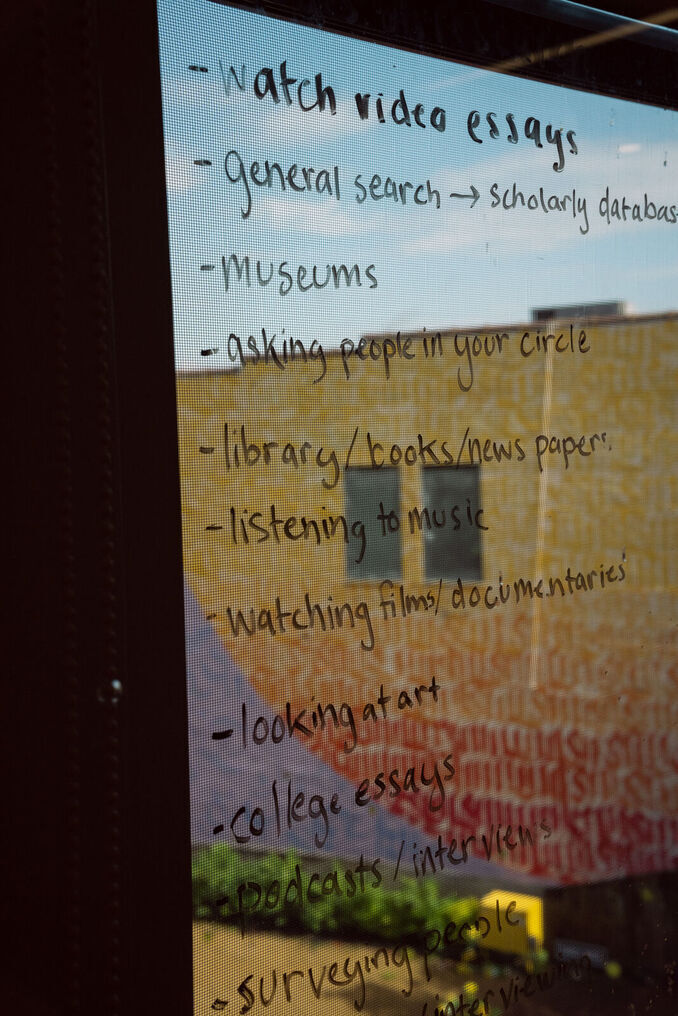 - watch video essays
- general search → scholarly databas
- museums
- asking people in your circle
- library/books/news papers
- listening to music
- watching films/documentaries
- looking at art
- college essays
- podcasts/interviews
- surveying people
/interviewing